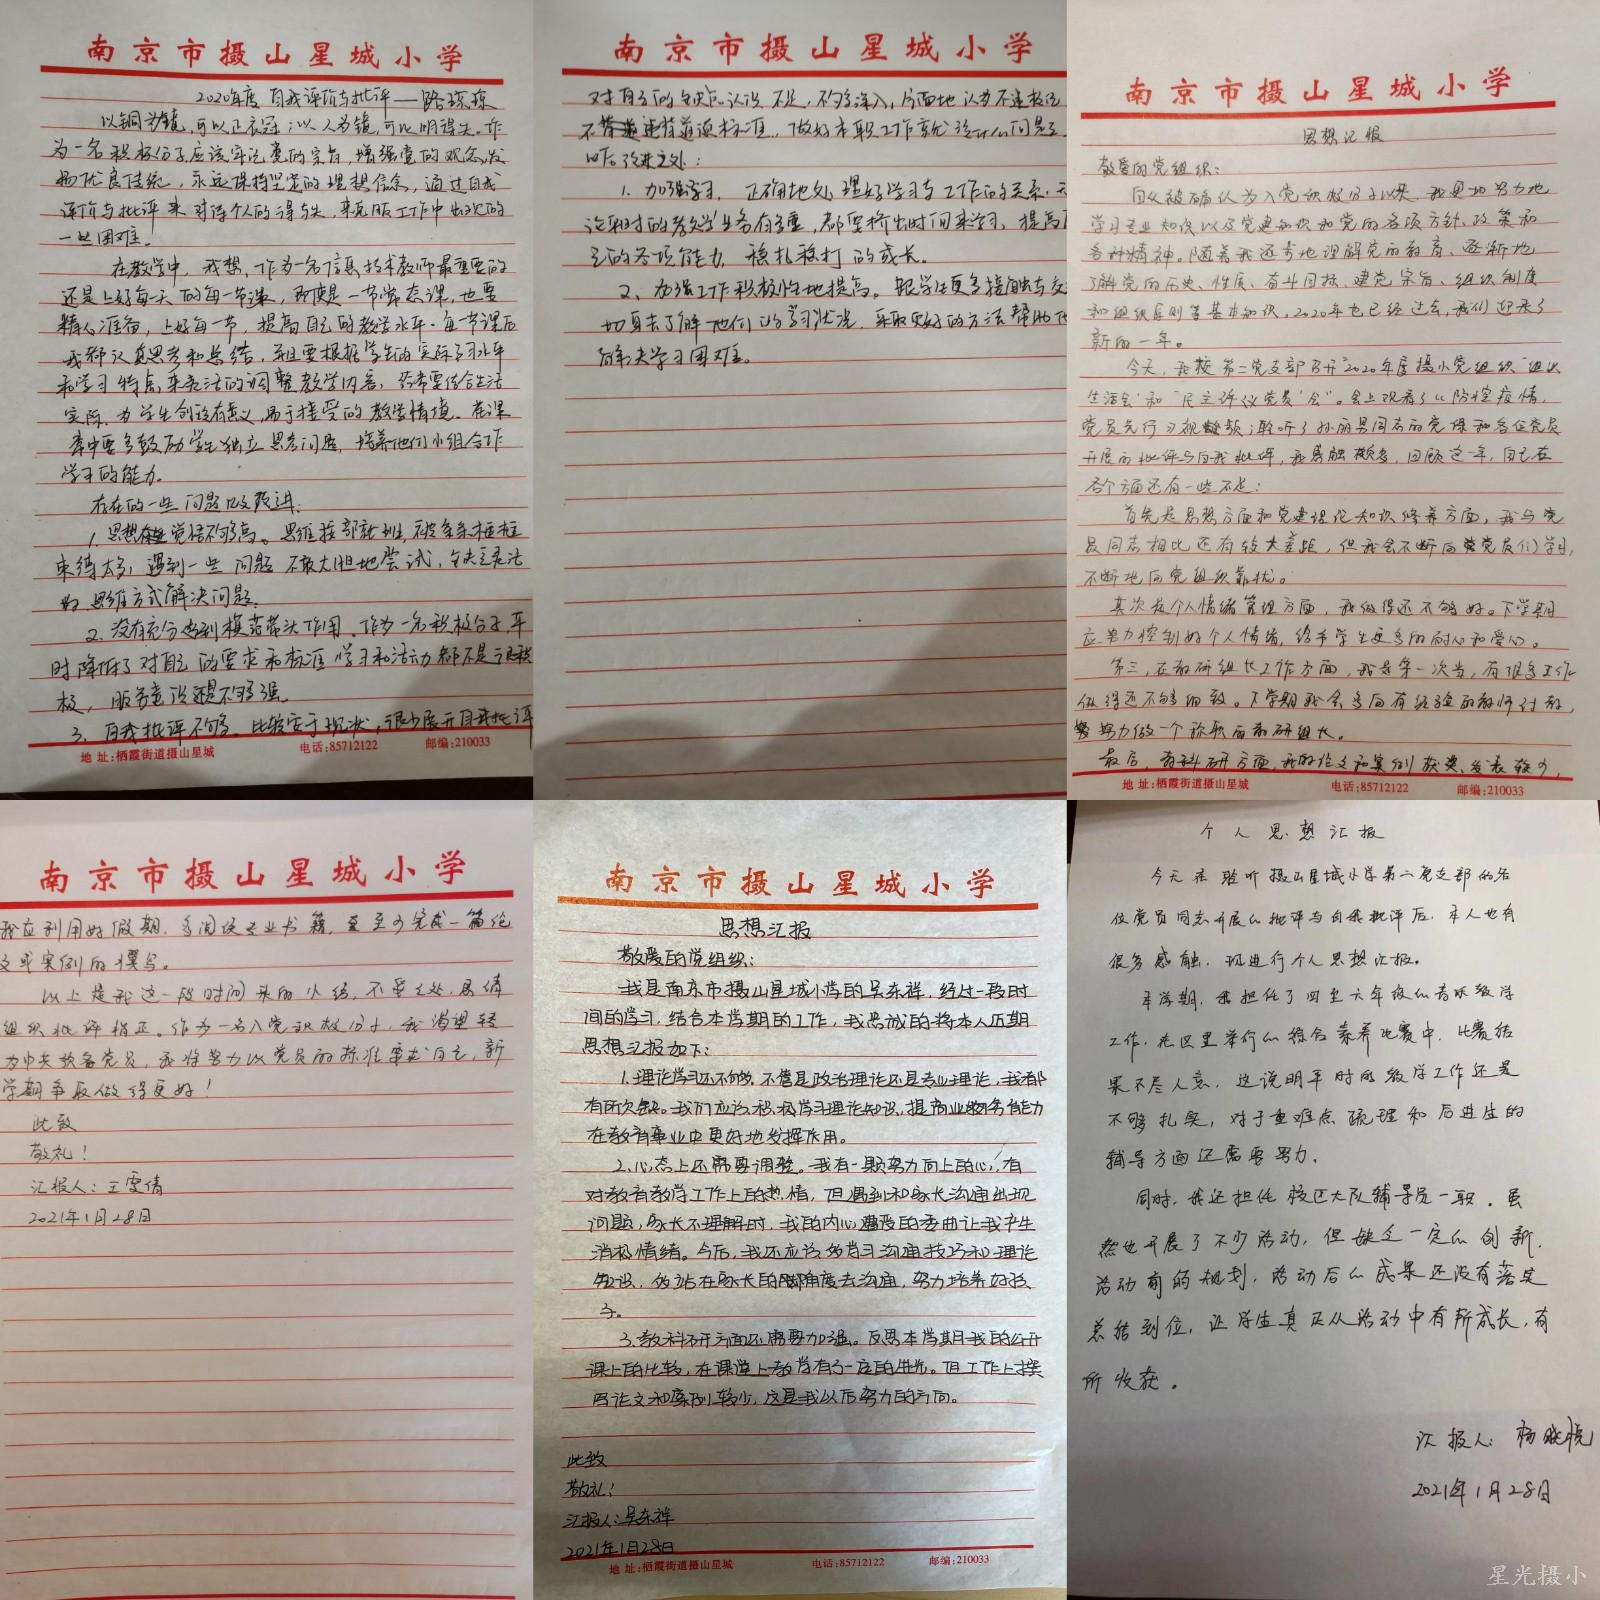 南京市摄山星城小学
2020年度 自我评价与批评——路琼琼
以铜为镜,可以正衣冠;以人为镜,可以明得失。作
为一名积极分子应该牢记党的宗旨,增强党的观念,发
扬优良传统,永远保持坚定的理想信念,通过自我
评价与批评来对待个人的得与失,来克服工作中出现的
一些困难。
在教学中,我想,作为一名信息技术教师最重要的
还是上好每一天的每一节课,即使是一节常态课,也要
精心准备,上好每一节,提高自己的教学水平。每一节课后
我都认真思考和总结,并且要根据学生的实际学习水平
和学习特点来灵活的调整教学内容,
实际,为学生创设有意义,易于接受的教学情境。在课
堂中要多鼓励学生独立思考问题,培养他们小组合作
学习的能力。
存在的一些问题以及改进:
1.思想觉悟不够高。思维按部就班,被条条框框
束缚太多,遇到一些问题不敢大胆地尝试,缺乏灵活
的思维方式解决问题。
2.没有充分起到模范带头作用。作为一名积极分子,平
时降低了对自己的要求和标准,学习和活动都不是很积
极,服务意识还不够强。
3.自我批评不够。比较安于现状,很少展开自我批评
地址:栖霞街道摄山星城 电话:85712122 邮编:210033
南京市摄山星城小学
对自己的缺点认识不足,不够深入,片面地认为不违反纪
不违背道德标准,做好本职工作就没什么问题。
以后改进之处:
1.加强学习,正确地处理好学习与工作的关系。无
论平时的教学任务有多重,都要挤出时间来学习,提高自
己的各项能力,稳扎稳打的成长。
2、加强工作积极性地提高。跟学生更多接触与交
切身去了解他们的学习状况,采取更好的方法帮助他
解决学习困难。
南京市摄山星城小学
思想汇报
敬爱的党组织:
自从被确认为入党积极分子以来,我更加努力地
学习专业知识以及党建知识和党的各项方针、政策和
各种精神。随着我逐步地理解党的教育、逐渐地
了解党的历史、性质、奋斗目标、建党宗旨、组织制度
和组织原则等基本知识,2020年也已经过去,我们迎来了
新的一年。
今天,我校第二党支部召开“2020年度摄小党组织“组织
生活会”和“民主评议党员”会”。会上观看了《防控疫情,
党员先行》视频;聆听了孙丽男同志的党课和各位党员
开展的批评与自我批评,我感触颇多,回顾这一年,自己在
各个方面还有一些不足:
首先是思想方面和党建理论知识修养方面,我与党
员同志相比还有较大差距,但我会不断向党员们学习,
不断地向党组织靠拢。
其次是个人情绪管理方面,我做得还不够好。下学期
应努力控制好个人情绪,给予学生更多的耐心和爱心。
第三,在教研组长工作方面,我是第一次当,有很多工作
做得还不够细致。下学期我会多向有经验的教师讨教,
努力做一个称职的教研组长。
最后,教科研方面,我的论文和案例获奖、发表较少,
地址:栖霞街道摄山星城 电话:85712122 邮编:210033
南京市摄山星城小学
我应利用好假期,多阅读专业书籍,至少完成一篇论
文或案例的撰写。
以上是我这一段时间来的小结,不妥之处,恳请
组织批评指正。作为一名入党积极分子,我渴望转
为中共预备党员,我将努力以党员的标准要求自己,新
学期争取做得更好!
此致
敬礼!
汇报人:王雯倩
2021年1月28日
南京市摄山星城小学
思想汇报
敬爱的党组织:
我是南京市摄山星城小学的吴东祥,经过一段时
间的学习,结合本学期的工作,我忠诚的将本人近期
思想汇报如下:
1.理论学习还不够。不管是政治理论还是专业理论,我都
有所欠缺。我们应该积极学习理论知识,提高业务能力
在教育事业中更好地发挥作用。
2.心态上还需要调整。我有一颗努力向上的心,有
对教育教学工作上的热情,但遇到和家长沟通出现
问题,家长不理解时,我的内心遭受的委曲让我产生
消极情绪。今后,我还应该多学习沟通技巧和理论
知识,多站在家长的角度去沟通,努力培养好孩
子。
3.教科研方面还需要加强。反思本学期我的公开
课上的比较,在课堂上教学有了一定的进步。但工作上撰
写论文和案例较少,这是我以后努力的方向。
此致
敬礼!
汇报人:吴东祥
2021年1月28日
地址:栖霞街道摄山星城 电话:85712122 邮编:210033
个人思想汇报
今天在聆听摄山星城小学第二党支部的各
位党员同志开展的批评与自我批评后,本人也有
很多感触,现进行个人思想汇报。
本学期,我担任了四至六年级的音乐教学
工作,在区里举行的综合素养比赛中,比赛结
果不尽人意,这说明平时的教学工作还是
不够扎实,对于重难点梳理和后进生的
辅导方面还需要努力。
同时,我还担任校区大队辅导员一职,虽
然也开展了不少活动,但缺乏一定的创新,
活动前的规划,活动后的成果还没有落实
总结到位,让学生真正从活动中有所成长,有
所收获。
汇报人:杨晓悦
2021年1月28日
星光摄小